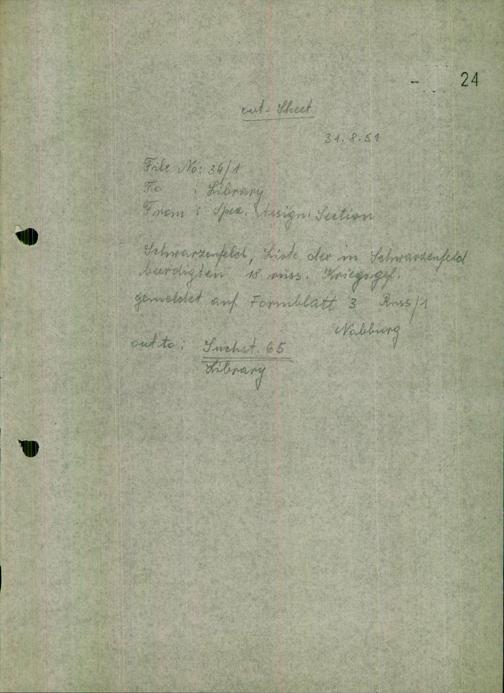 - 24
out-Sheet
31.8.51
File No: 34/1
To : Library
From : Spez. Assign. Section
Schwarzenfeld, Liste der in Schwarzenfeld
beerdigten 18 russ. Kriegsgef.
gemeldet auf Formblatt 3 Russ/1
Nabburg
out to : Suchst. 65
Library